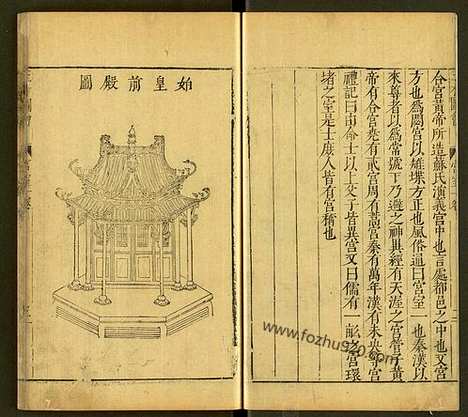 合宮黃帝所造蘇氏演義宮中也言處都邑之中也又宮
方也為闕宮以雉堞方正也風俗通曰宮室一也秦漢以
來尊者以為常號下乃避之神異經有天涯之宮管子黃
帝有合宮堯有貳宮周有蒿宮秦有萬年漢有未央等宮
禮記曰由命士以上父子皆異宮又曰儒有一畝之宮環
堵之室是士庶人皆有宮稱也
始皇前殿圖
www.fozhu920.com